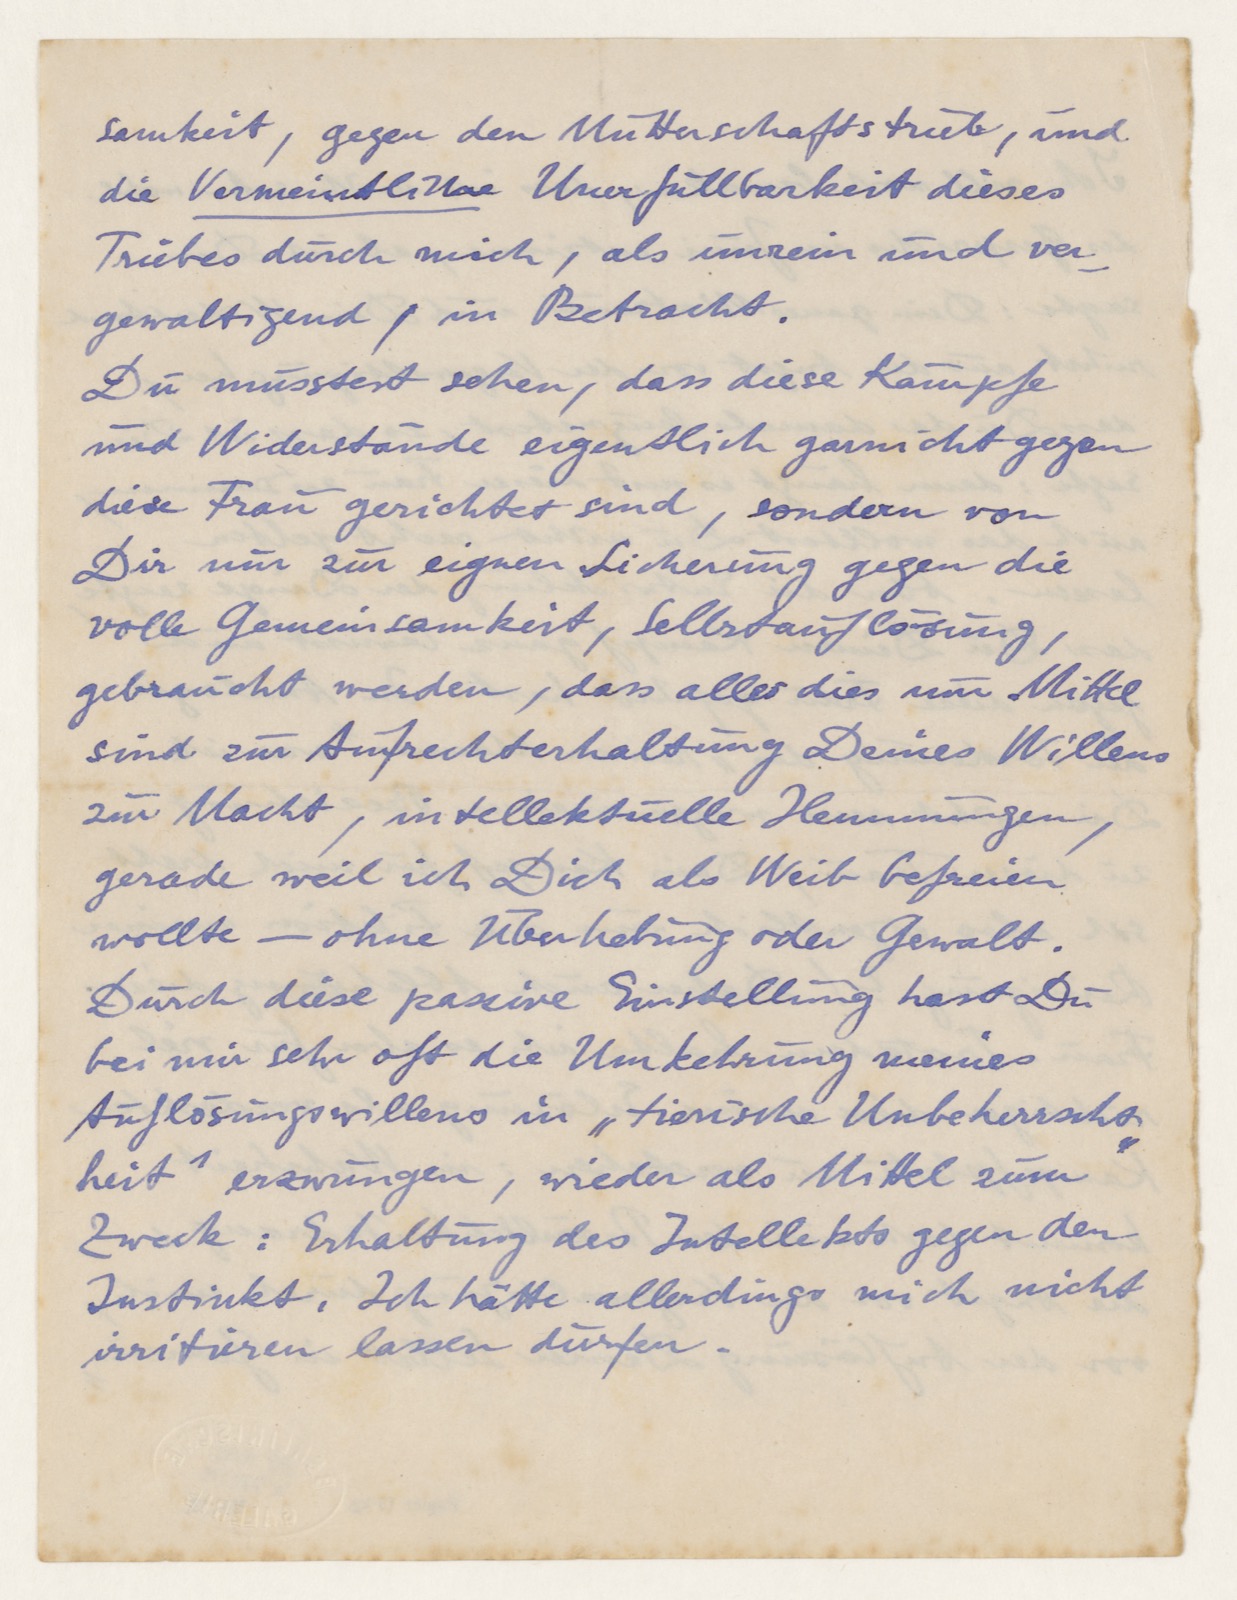 samkeit, gegen den Mutterschaftstrieb, und
die Vermeintliche Unerfüllbarkeit dieses
Triebes durch mich, als unrein und ver-
gewaltigend, in Betracht.
Du müsstest sehen, dass diese Kämpfe
und Widerstände eigentlich garnicht gegen
diese Frau gerichtet sind, sondern von
Dir nur zur eignen Sicherung gegen die
volle Gemeinsamkeit, Selbstauflösung,
gebraucht werden, dass alles dies nur Mittel
sind zur Aufrechterhaltung Deines Willens
zur Macht, intellektuelle Hemmungen,
gerade weil ich Dich als Weib befreien
wollte — ohne Überhebung oder Gewalt.
Durch diese passive Einstellung hast Du
bei mir sehr oft die Umkehrung meines
Auflösungswillens in „tierische Unbeherrscht-
heit" erzwungen, wieder als Mittel zum
Zweck: Erhaltung des Intellekts gegen den
Instinkt. Ich hätte allerdings mich nicht
irritieren lassen dürfen.